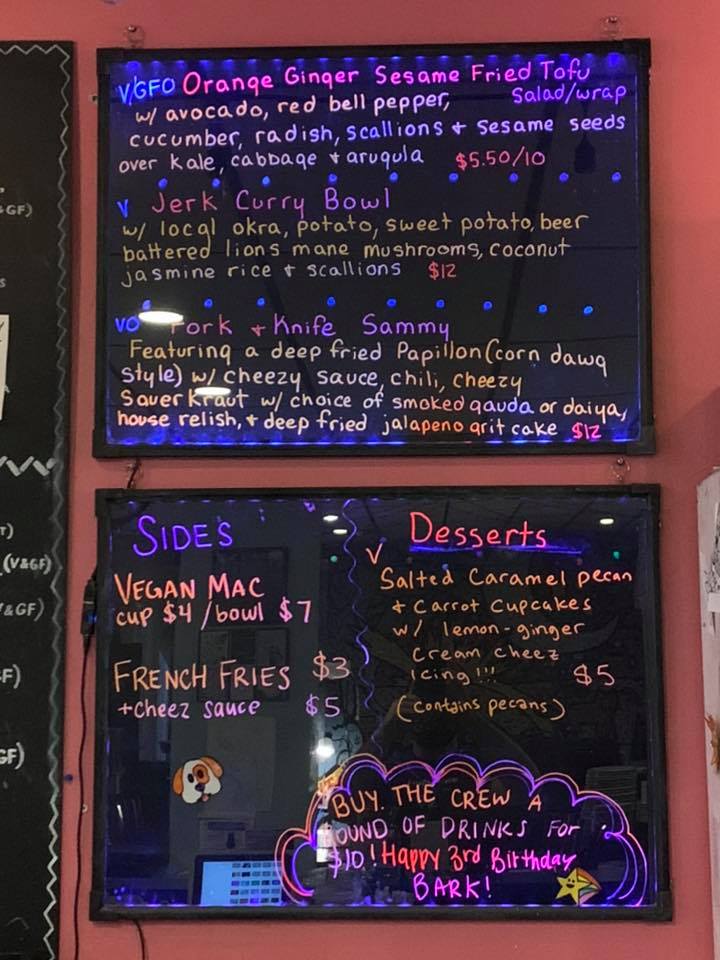 V/GFO Orange Ginger Sesame Fried Tofu
Salad/wrap
w/ avocado, red bell pepper,
cucumber, radish, scallions + sesame seeds
over kale, cabbage + arugula $5.50/10
V Jerk Curry Bowl
w/ local okra, potato, sweet potato, beer
battered lions mane mushrooms, coconut
jasmine rice + scallions $12
VO Fork + Knife Sammy
Featuring a deep fried Papillon (corn dawg
style) w/ cheezy sauce, chili, cheezy
Sauerkraut w/ choice of smoked gauda or daiya,
house relish, + deep fried jalapeno grit cake $12
SIDES
VEGAN MAC
cup $4 / bowl $7
FRENCH FRIES $3
+cheez sauce $5
Desserts
V
Salted Caramel pecan
+ Carrot Cupcakes
w/ lemon-ginger
Cream cheez
icing!!! $5
(contains pecans)
BUY THE CREW A
ROUND OF DRINKS FOR
$10! Happy 3rd Birthday
BARK!
GF)
T)
(V&GF)
&GF)
F)
GF)